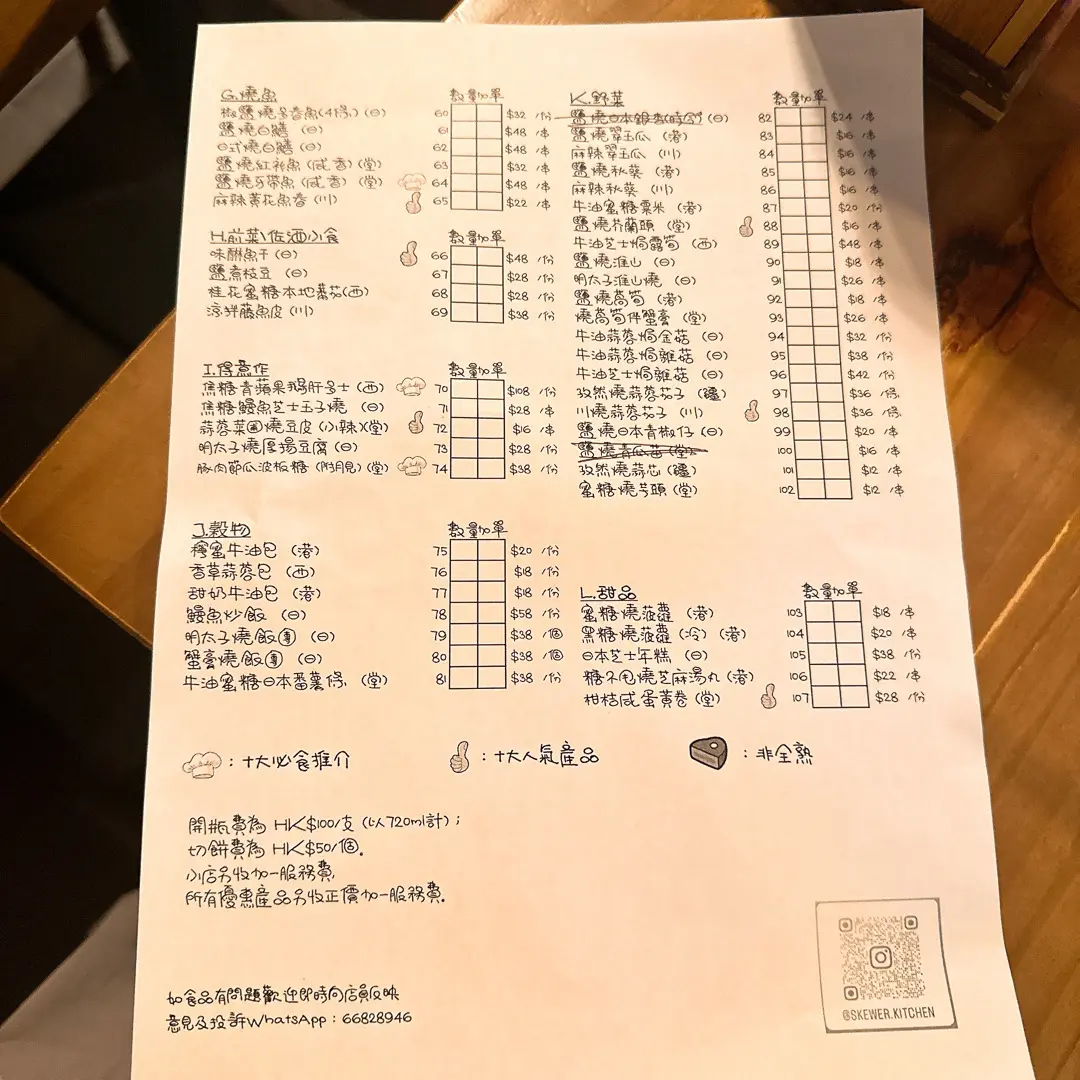 G.燒魚 數量加單
椒鹽燒多春魚(4條) (日) 60 $32 /份
鹽燒白鱔 (日) 61 $48 /串
日式燒白鱔 (日) 62 $48 /串
鹽燒紅衫魚 (咸香) (堂) 63 $32 /串
鹽燒牙帶魚 (咸香) (堂) 64 $48 /串
麻辣黃花魚春 (川) 65 $22 /串
H.前菜\佐酒小食 數量加單
味醂魚干 (日) 66 $48 /份
鹽煮枝豆 (日) 67 $28 /份
桂花蜜糖本地蕃茄(西) 68 $28 /份
涼拌脆魚皮 (川) 69 $38 /份
I.得意作 數量加單
焦糖青蘋果鵝肝多士 (西) 70 $108 /份
焦糖鰻魚芝士玉子燒 (日) 71 $28 /串
蒜蓉菜圃燒豆皮 (小辣)(堂) 72 $16 /串
明太子燒厚揚豆腐 (日) 73 $28 /份
豚肉節瓜波板糖 (附月見) (堂) 74 $38 /份
J.穀物 數量加單
檸蜜牛油包 (港) 75 $20 /份
香草蒜蓉包 (西) 76 $18 /份
甜奶牛油包 (港) 77 $18 /份
鰻魚炒飯 (日) 78 $58 /份
明太子燒飯團 (日) 79 $38 /個
蟹膏燒飯團 (日) 80 $38 /個
牛油蜜糖日本番薯條 (堂) 81 $38 /份
K.野菜 數量加單
鹽燒日本銀杏(時令) (日) 82 $24 /串
鹽燒翠玉瓜 (港) 83 $16 /串
麻辣翠玉瓜 (川) 84 $16 /串
鹽燒秋葵 (港) 85 $16 /串
麻辣秋葵 (川) 86 $16 /串
牛油蜜糖粟米 (港) 87 $20 /份
鹽燒芥蘭頭 (堂) 88 $16 /串
牛油芝士焗露筍 (西) 89 $48 /串
鹽燒淮山 (日) 90 $18 /串
明太子淮山燒 (日) 91 $26 /串
鹽燒萵筍 (港) 92 $18 /串
燒萵筍伴蟹膏 (堂) 93 $26 /串
牛油蒜蓉焗金菇 (日) 94 $32 /份
牛油蒜蓉焗雜菇 (日) 95 $38 /份
牛油芝士焗雜菇 (日) 96 $42 /份
孜然燒蒜蓉茄子 (疆) 97 $36 /條
川燒蒜蓉茄子 (川) 98 $36 /條
鹽燒日本青椒仔 (日) 99 $20 /串
鹽燒青瓜苗 (堂) 100 $16 /串
孜然燒蒜芯 (疆) 101 $12 /串
蜜糖燒芋頭 (堂) 102 $12 /串
L.甜品 數量加單
蜜糖燒菠蘿 (港) 103 $18 /串
黑糖燒菠蘿 (冷) (港) 104 $20 /串
日本芝士年糕 (日) 105 $38 /份
糖不甩燒芝麻湯丸 (港) 106 $22 /串
柑桔咸蛋黃卷 (堂) 107 $28 /份
: 十大必食推介 : 十大人氣產品 : 非全熟
開瓶費為 HK$100/支 (以720ml計) ;
切餅費為 HK$50/個.
小店另收加一服務費,
所有優惠產品另收正價加一服務費.
如食品有問題歡迎即時向店員反映
意見及投訴WhatsApp : 66828946
@SKEWER.KITCHEN